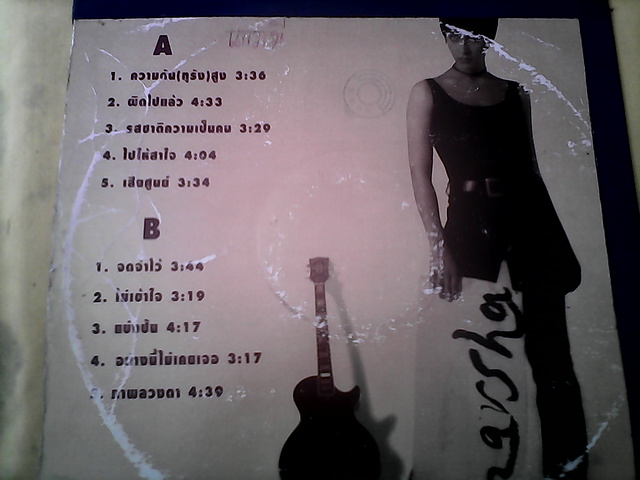 A
1. ความดัน(ทุรัง)สูง 3:36
2. ผิดไปแล้ว 4:33
3. รสชาติความเป็นคน 3:29
4. ไปให้สาใจ 4:04
5. เสียศูนย์ 3:34
B
1. จดจำไว้ 3:44
2. ไม่เข้าใจ 3:19
3. แย่งปั้น 4:17
4. อย่างนี้ไม่เคยเจอ 3:17
5. ภาพลวงตา 4:39
marsha